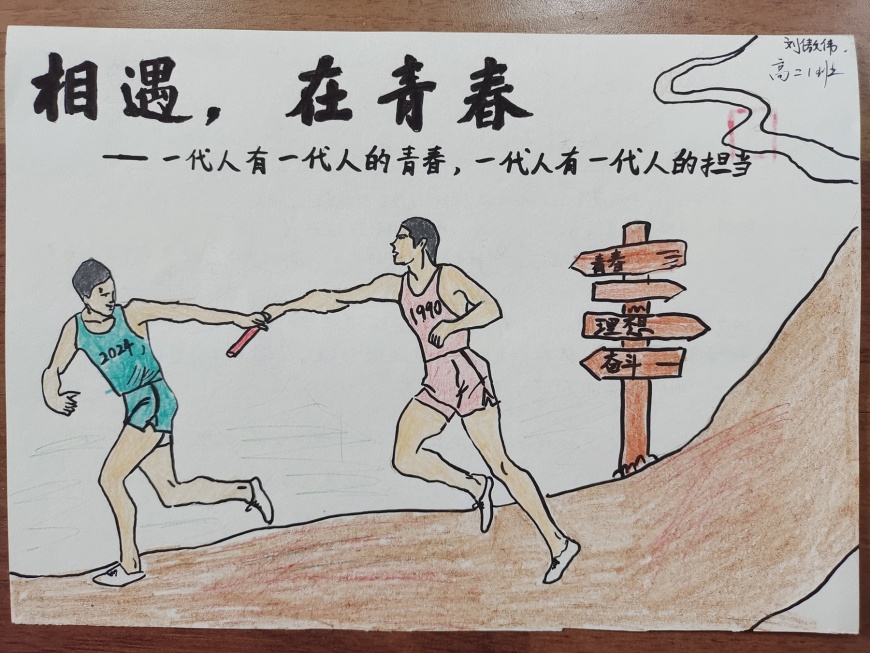 相遇，在青春
——一代人有一代人的青春，一代人有一代人的担当
刘傲伟.
高二1班
青春
理想
奋斗
2024
1990